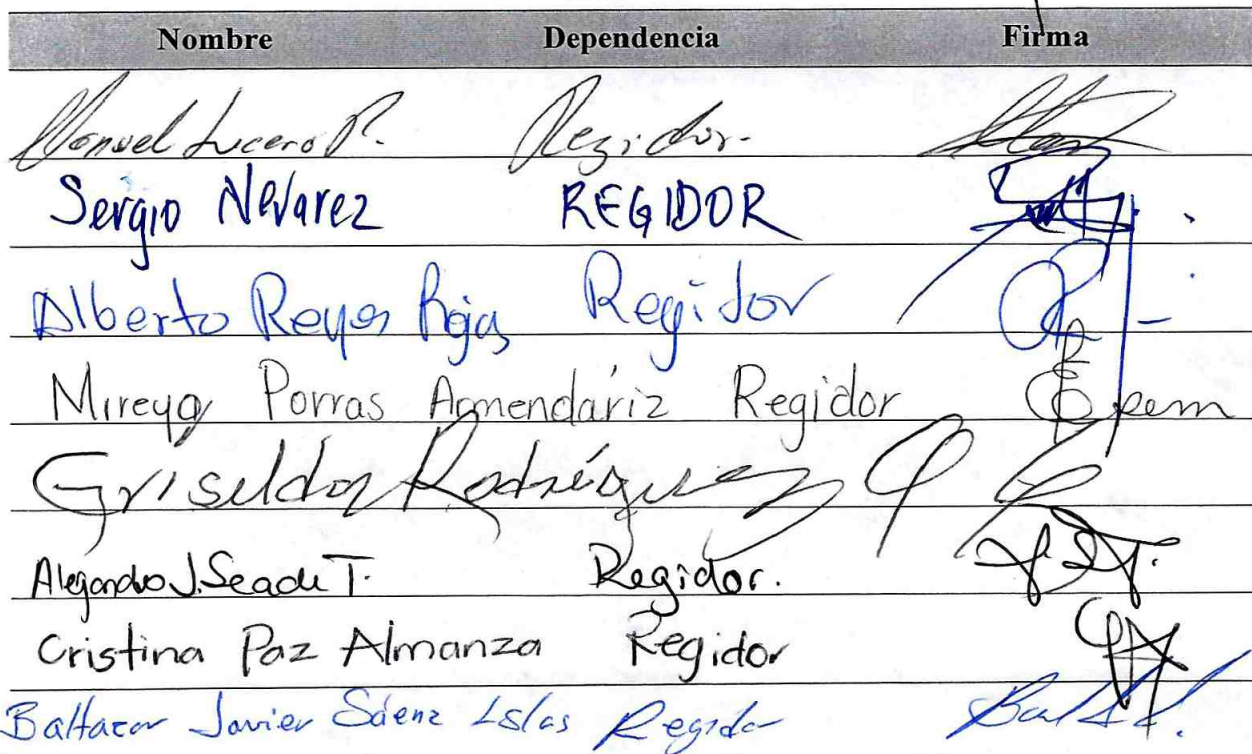 Nombre Dependencia Firma
Manuel Lucero R. Regidor.
Sergio Nevarez REGIDOR
Alberto Reyes Rojas Regidor
Mireya Porras Armendáriz Regidor
Griselda Rodríguez
Alejandro J. Seade T. Regidor.
Cristina Paz Almanza Regidor
Baltazar Javier Sáenz Islas Regidor